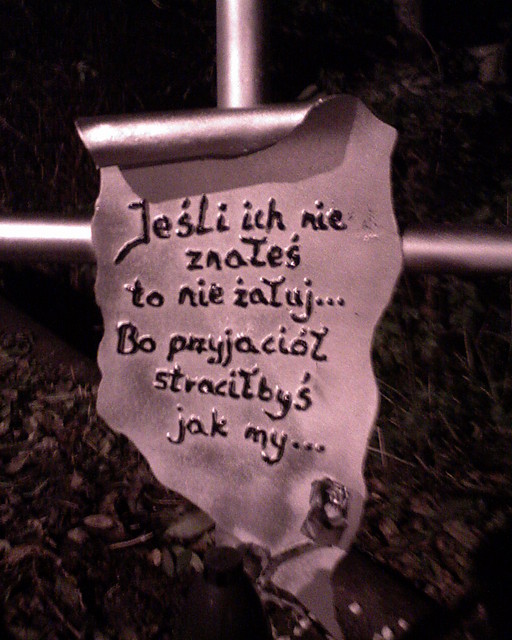 Jeśli ich nie
znałeś
to nie żałuj...
Bo przyjaciół
straciłbyś
jak my...